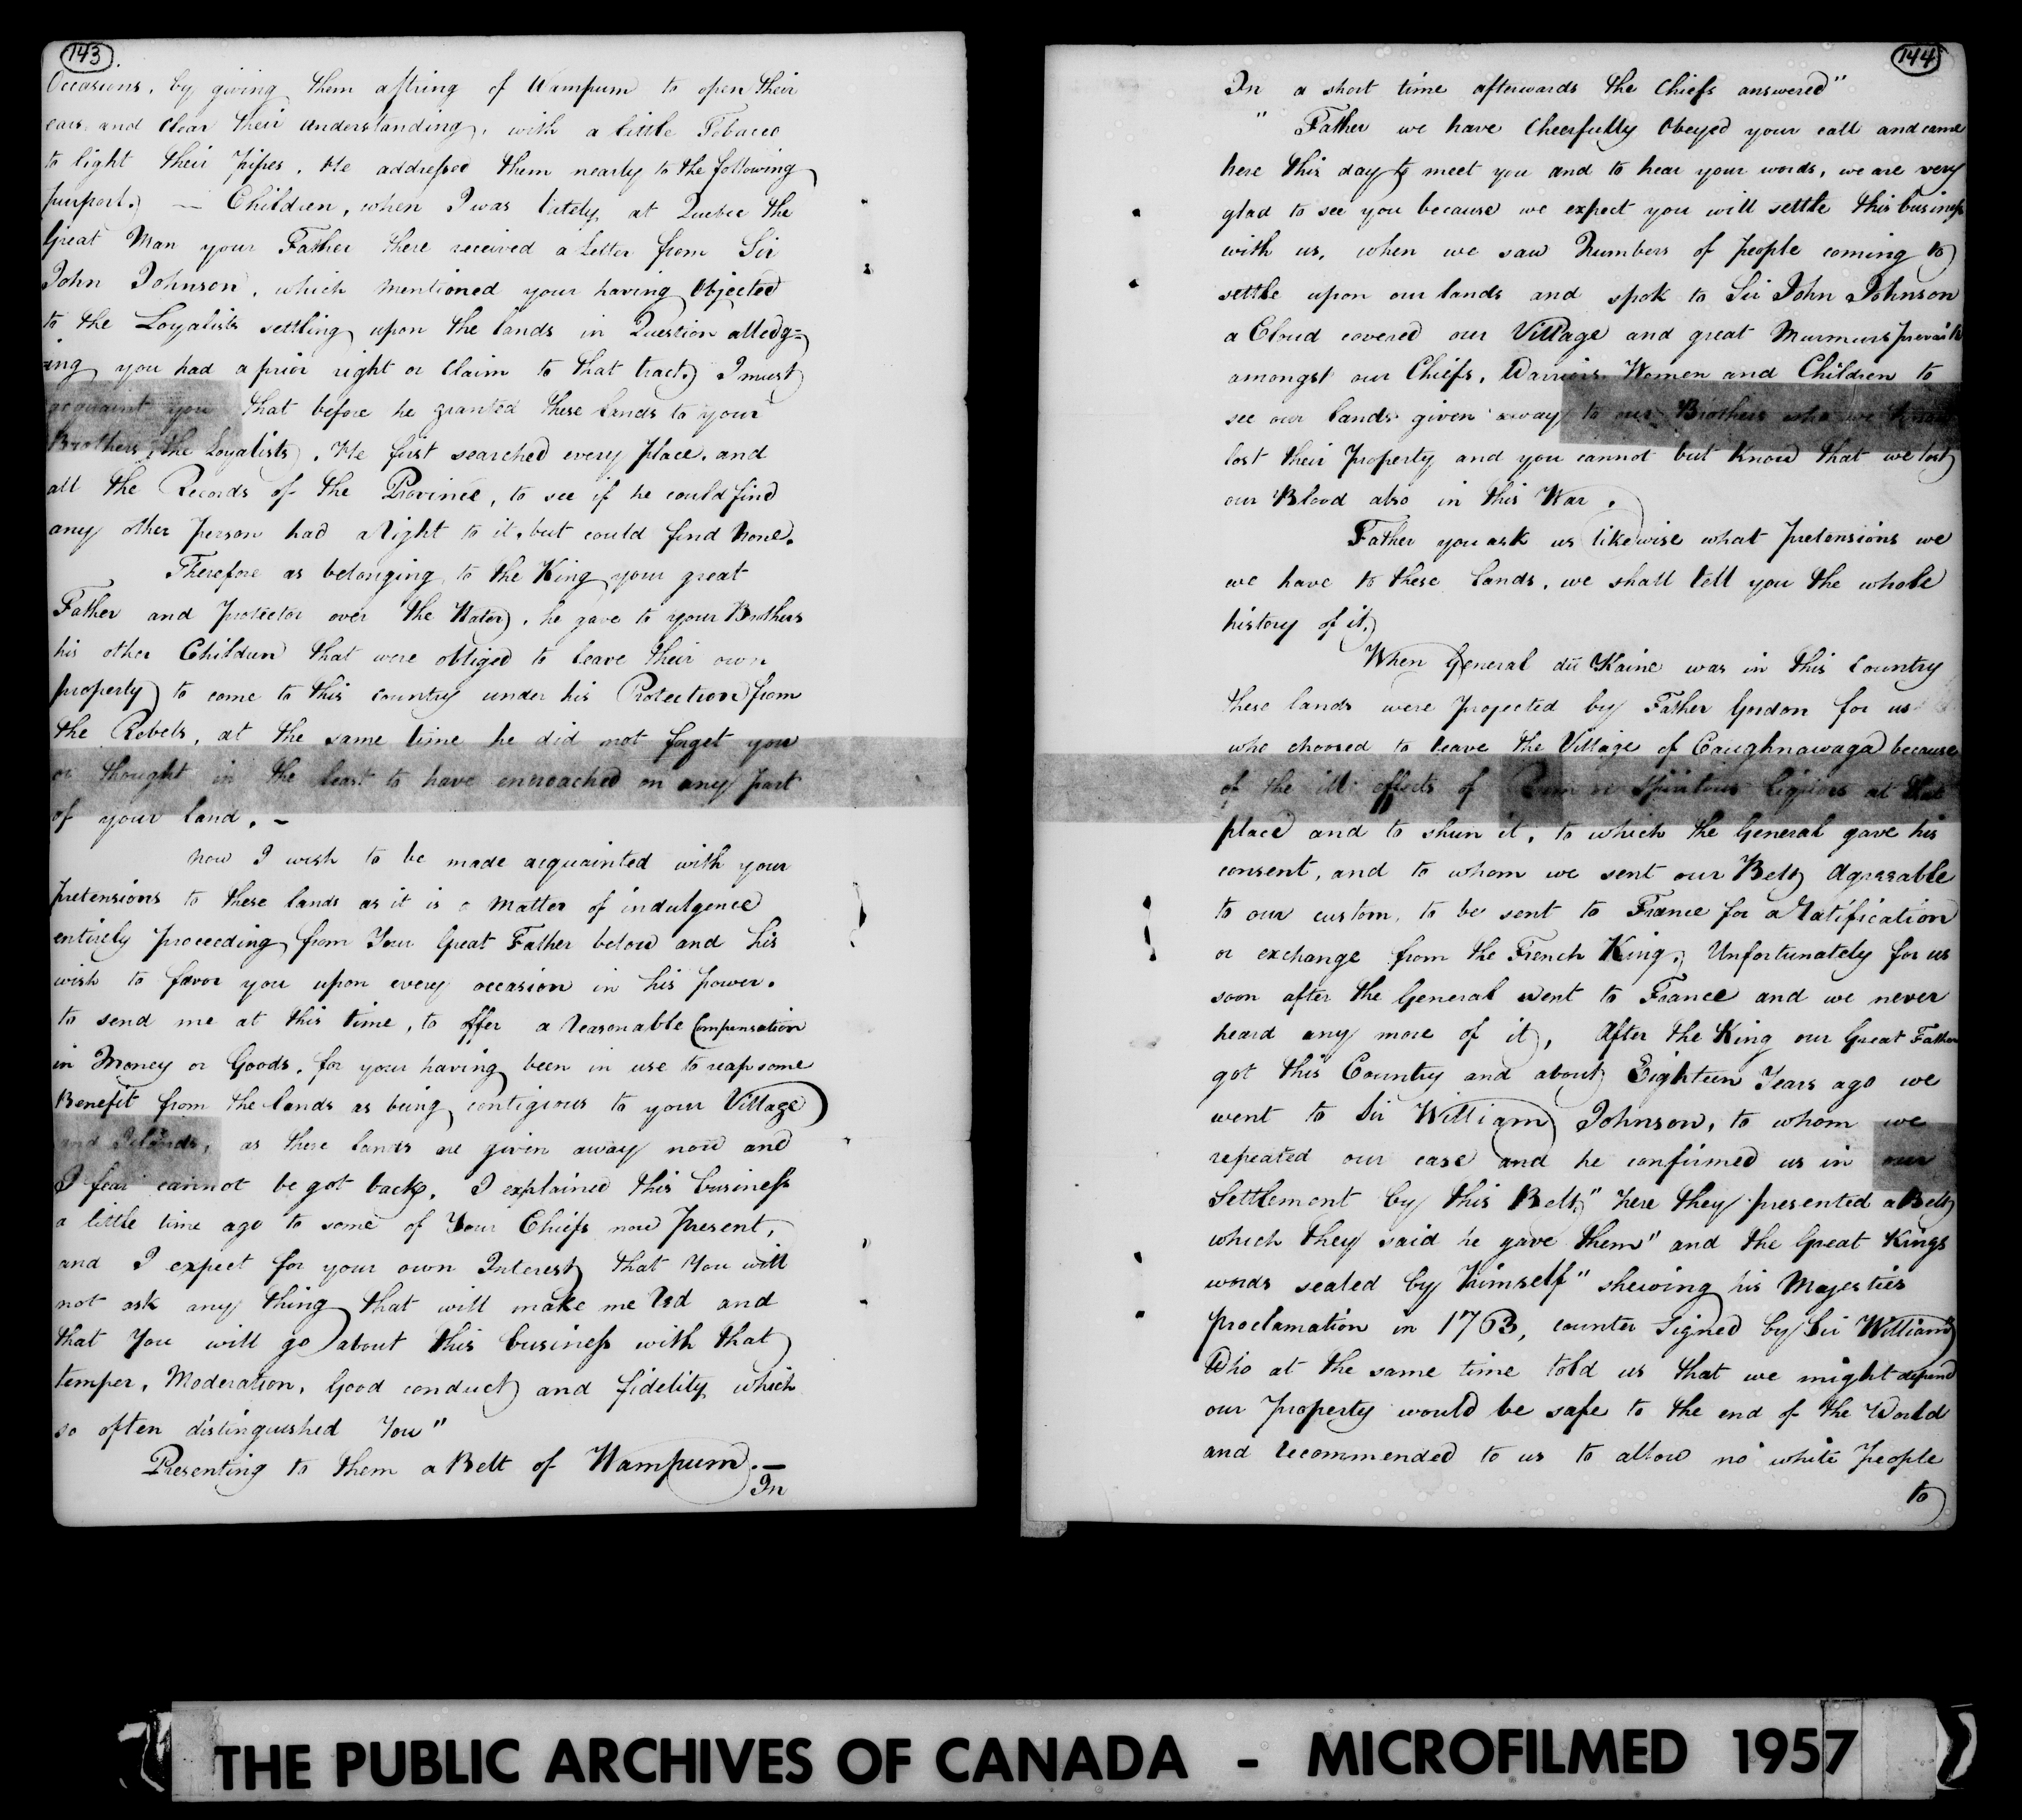 143.
Occasions, by giving them a string of Wampum to open their
ears, and clear their understanding, with a little Tobacco
to light their pipes. He addressed them nearly to the following
purport. — Children, when I was lately at Quebec the
Great Man your Father there received a Letter from Sir
John Johnson, which mentioned your having Objected
to the Loyalists settling upon the lands in Question alledg=
=ing you had a prior right or Claim to that tract. I must
acquaint you that before he granted these lands to your
Brothers, the Loyalists, He first searched every place, and
all the Records of the Province, to see if he could find
any other person had a Right to it, but could find None.
Therefore as belonging to the King your great
Father and protector over the Water, he gave to your Brothers
his other Children that were obliged to leave their own
property to come to this country under his Protection from
the Rebels, at the same time he did not forget you
or thought in the least to have encroached on any part
of your land. —
now I wish to be made acquainted with your
pretensions to these lands as it is a matter of indulgence
entirely proceeding from Your Great Father below and his
wish to favor you upon every occasion in his power.
to send me at this time, to offer a reasonable Compensation
in Money or Goods, for your having been in use to reap some
Benefit from the lands as being contigious to your Village
and Islands, as these lands are given away now and
I fear cannot be got back. I explained this business
a little time ago to some of Your Chiefs now Present,
and I expect for your own Interest that You will
not ask any thing that will make me Red and
that You will go about this business with that
temper, Moderation, Good conduct and fidelity which
so often distinguished You"
Presenting to them a Belt of Wampum. —
In
144
In a short time afterwards the Chiefs answered"
" Father we have Cheerfully Obeyed your call and came
here this day to meet you and to hear your words, we are very
glad to see you because we expect you will settle this business
with us, when we saw Numbers of people coming to
settle upon our lands and spok to Sir John Johnson
a Cloud covered our Village and great Murmurs prevails
amongst our Chiefs, Warriors Women and Children to
see our lands given away to our Brothers who we know
lost their Property and you cannot but know that we lost
our Blood also in this War.
Father you ask us likewise what pretensions we
we have to these Lands, we shall tell you the whole
history of it.
When General du Kaine was in this Country
these lands were projected by Father Gordon for us
who choosed to leave the Village of Caughnawaga because
of the ill effects of Rum or Spiritous liquors at that
place and to shun it, to which the General gave his
consent, and to whom we sent our Belts Agreeable
to our custom, to be sent to France for a Ratification
or exchange from the French King. Unfortunately for us
soon after the General went to France and we never
heard any more of it, After the King our Great Father
got this Country and about Eighteen Years ago we
went to Sir William Johnson, to whom we
repeated our case and he confirmed us in our
Settlement by this Belt," here they presented a Belt
which they said he gave them" and the Great Kings
words sealed by himself" shewing his Majesties
proclamation in 1763, counter signed by Sir William"
Who at the same time told us that we might depend
our property would be safe to the end of the World
and recommended to us to allow no white People
to
THE PUBLIC ARCHIVES OF CANADA - MICROFILMED 1957